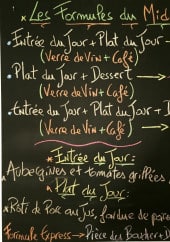 Les Formules du Mid
Entrée du Jour + Plat du Jour
(Verre de Vin + Café)
Plat du Jour + Dessert
(Verre de Vin + Café)
Entrée du Jour + Plat du Jour - D
(Verre de Vin + Café)
Entrée du Jour:
Aubergines et tomates grillées
Plat du Jour:
Rôti de Porc au jus, fondue de poire
Formule Express → Pièce du Boucher + D